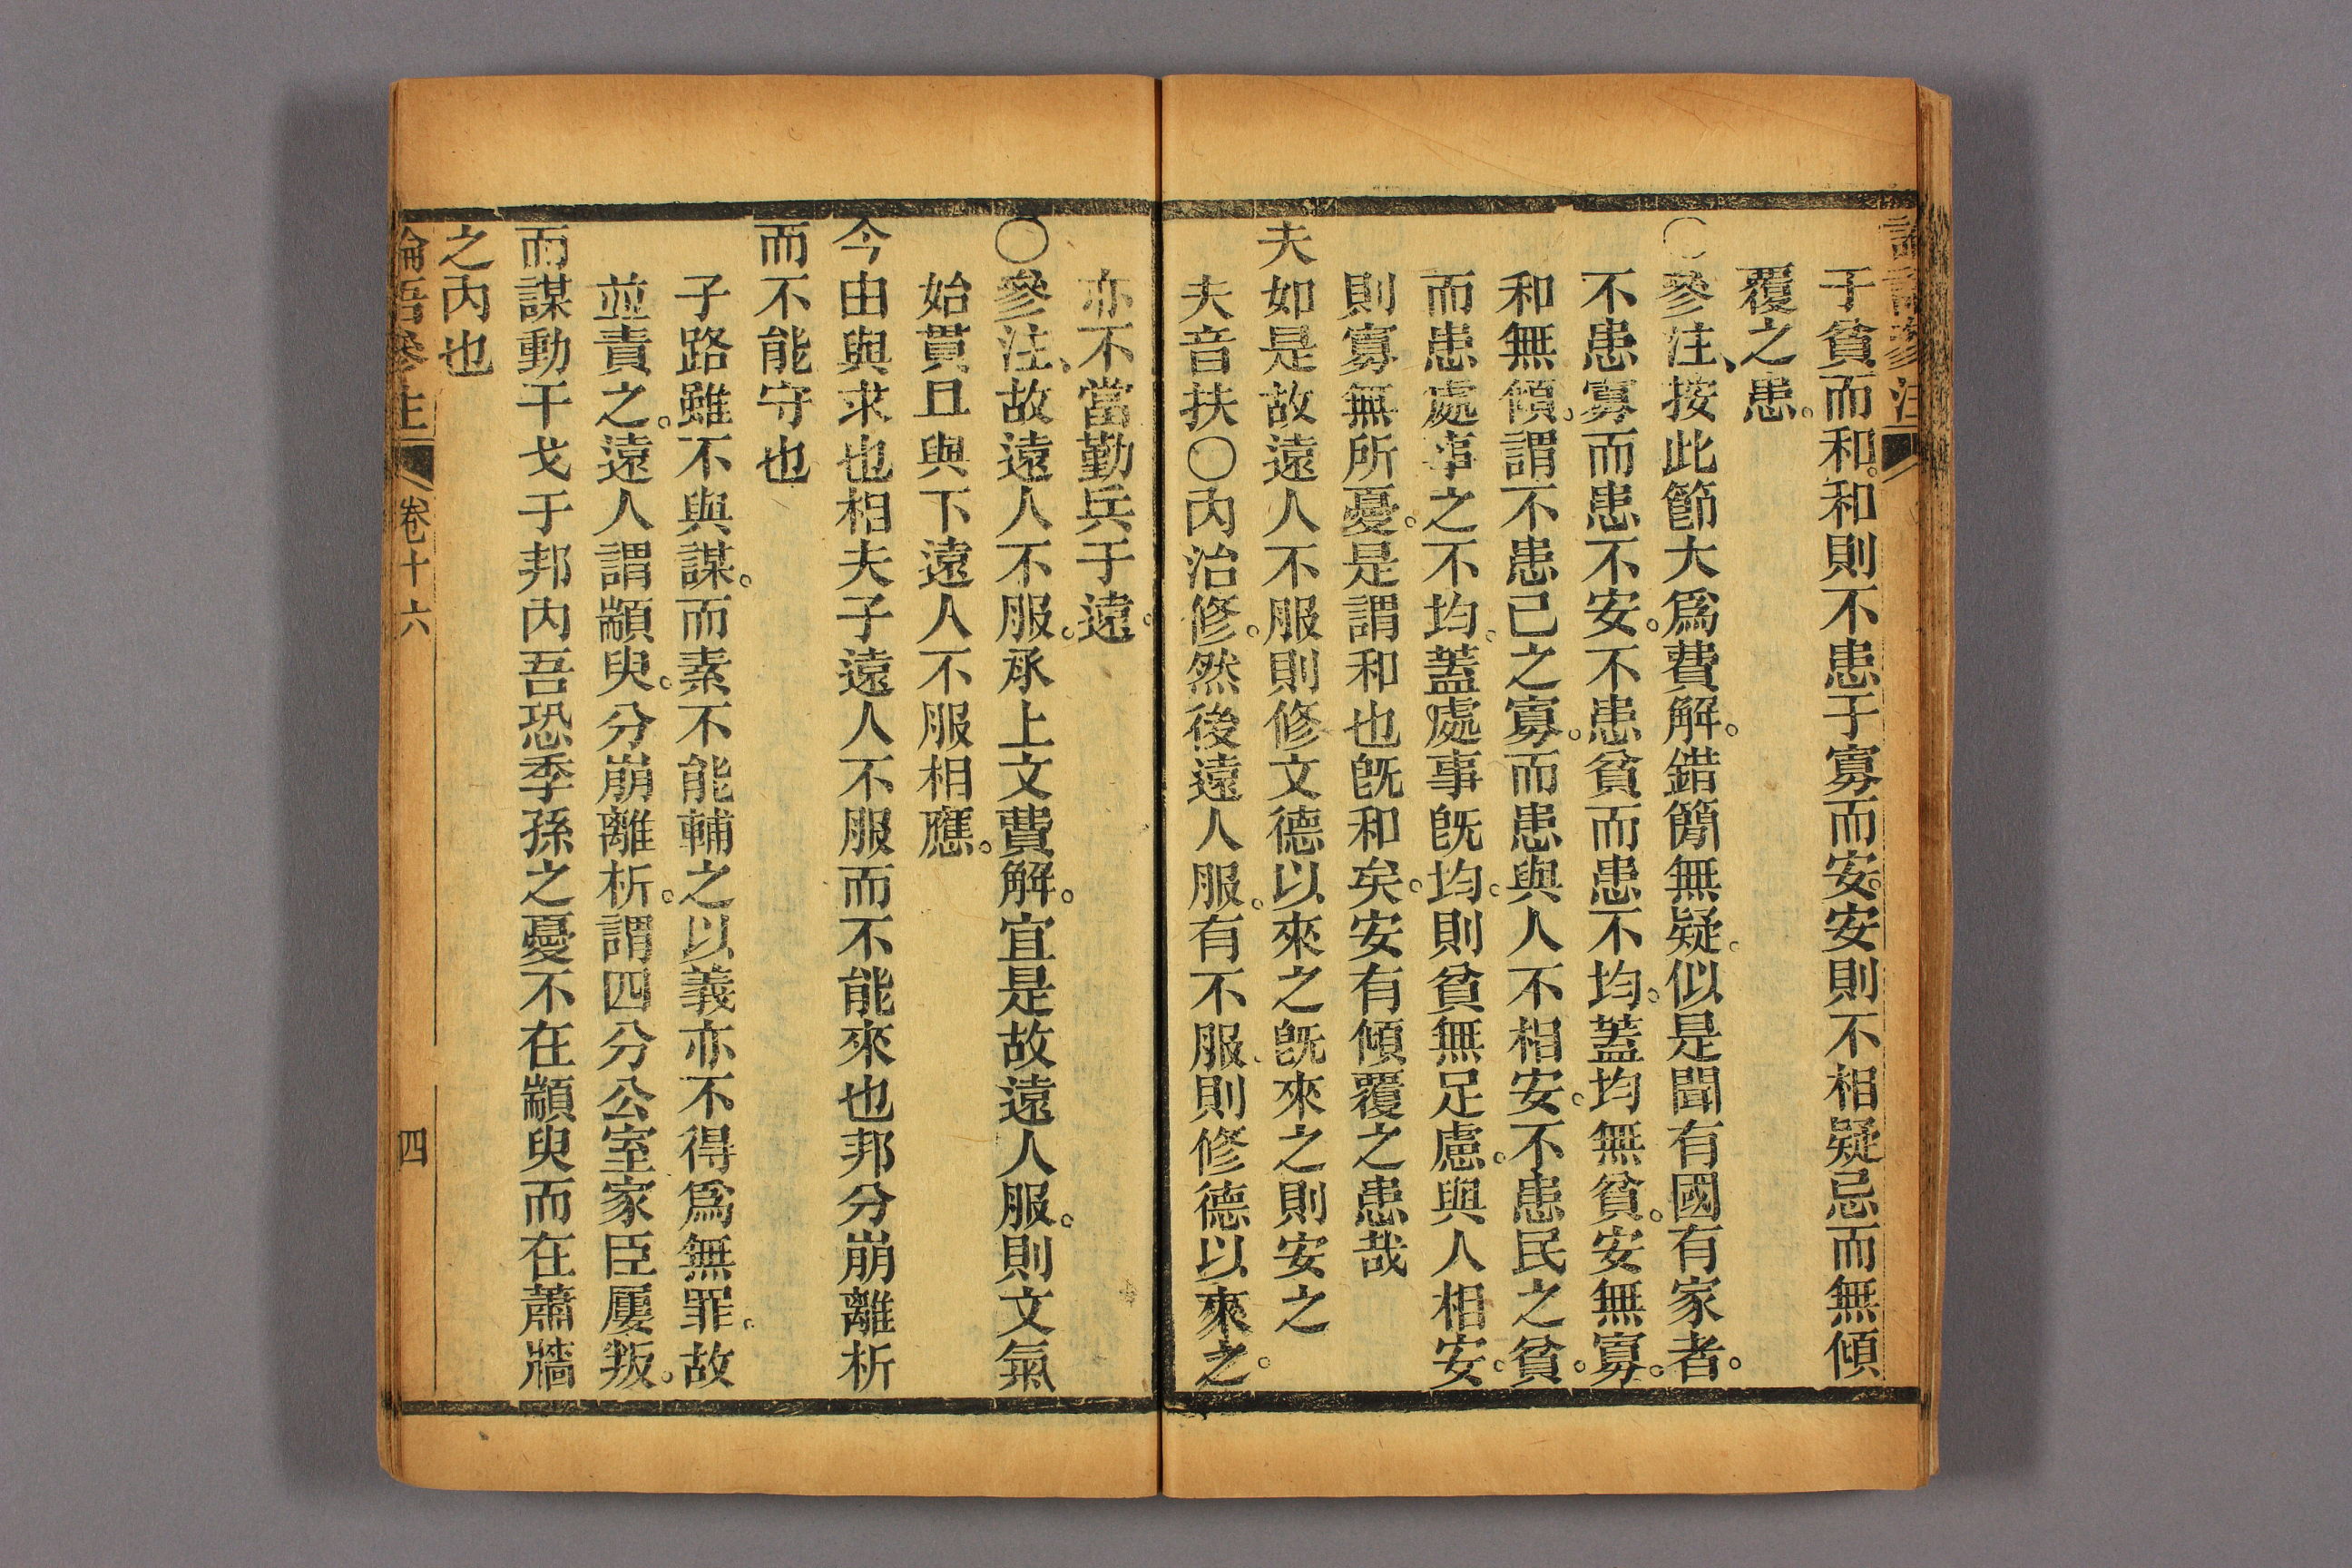 于貧而和。和則不患于寡而安。安則不相疑忌而無傾
覆之患。
〇參注、按此節大爲費解。錯簡無疑。似是聞有國有家者。
不患寡而患不安。不患貧而患不均。蓋均無貧。安無寡。
和無傾。謂不患己之寡。而患與人不相安。不患民之貧。
而患處事之不均。蓋處事旣均。則貧無足慮。與人相安。
則寡無所憂。是謂和也旣和矣。安有傾覆之患哉
夫如是故遠人不服則修文德以來之旣來之則安之
夫音扶〇內治修。然後遠人服。有不服、則修德以來之。
亦不當勤兵于遠。
〇參注、故遠人不服。承上文費解。宜是故遠人服。則文氣
始貫且與下遠人不服相應。
今由與求也相夫子遠人不服而不能來也邦分崩離析
而不能守也
子路雖不與謀。而素不能輔之以義亦不得爲無罪。故
並責之。遠人謂顓臾。分崩離析。謂四分公室家臣屢叛。
而謀動干戈于邦內吾恐季孫之憂不在顓臾而在蕭牆
之內也
論語參注 卷十六 四